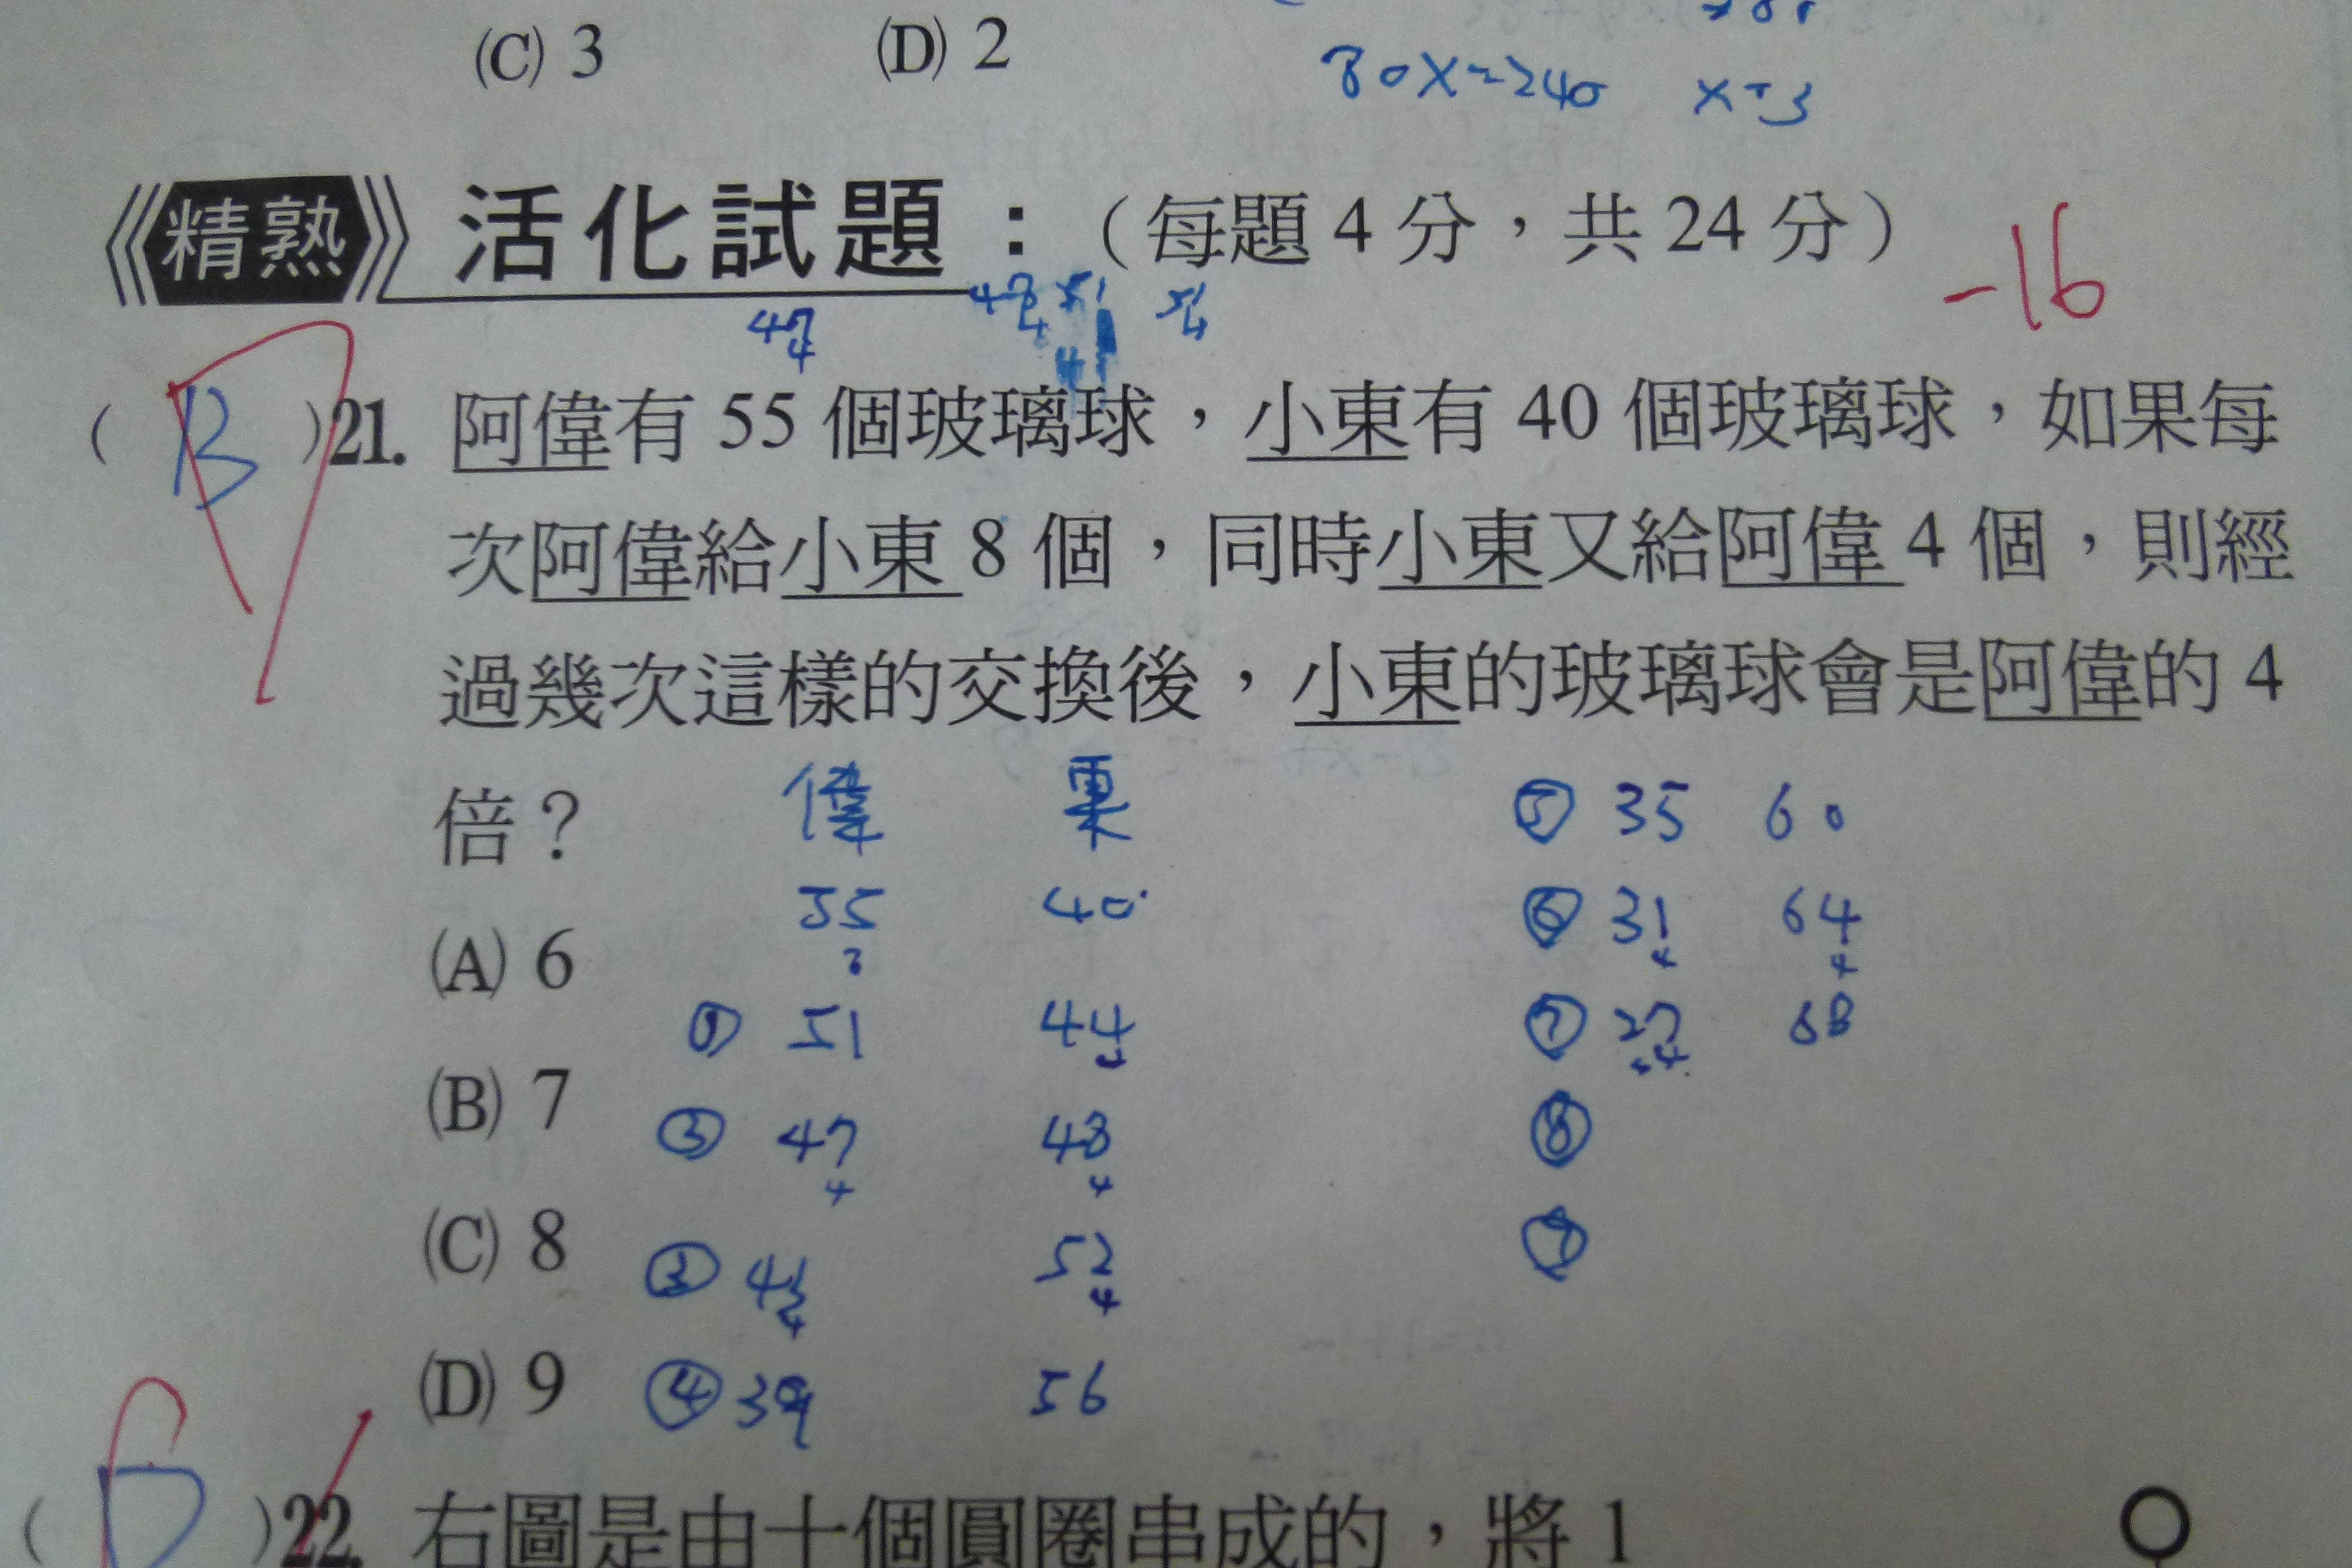 (C) 3 (D) 2
80x=240 x=3
精熟 活化試題：（每題 4 分，共 24 分）
-16
47
4
51
4
( B )21. 阿偉有 55 個玻璃球，小東有 40 個玻璃球，如果每
次阿偉給小東 8 個，同時小東又給阿偉 4 個，則經
過幾次這樣的交換後，小東的玻璃球會是阿偉的 4
倍？
(A) 6
(B) 7
(C) 8
(D) 9
偉 東
55 40
① 51 44
② 47 48
4 4
③ 43 52
4 4
④ 39 56
⑤ 35 60
⑥ 31 64
4 4
⑦ 27 68
-4
⑧
⑨
( D )22. 右圖是由十個圓圈串成的，將 1